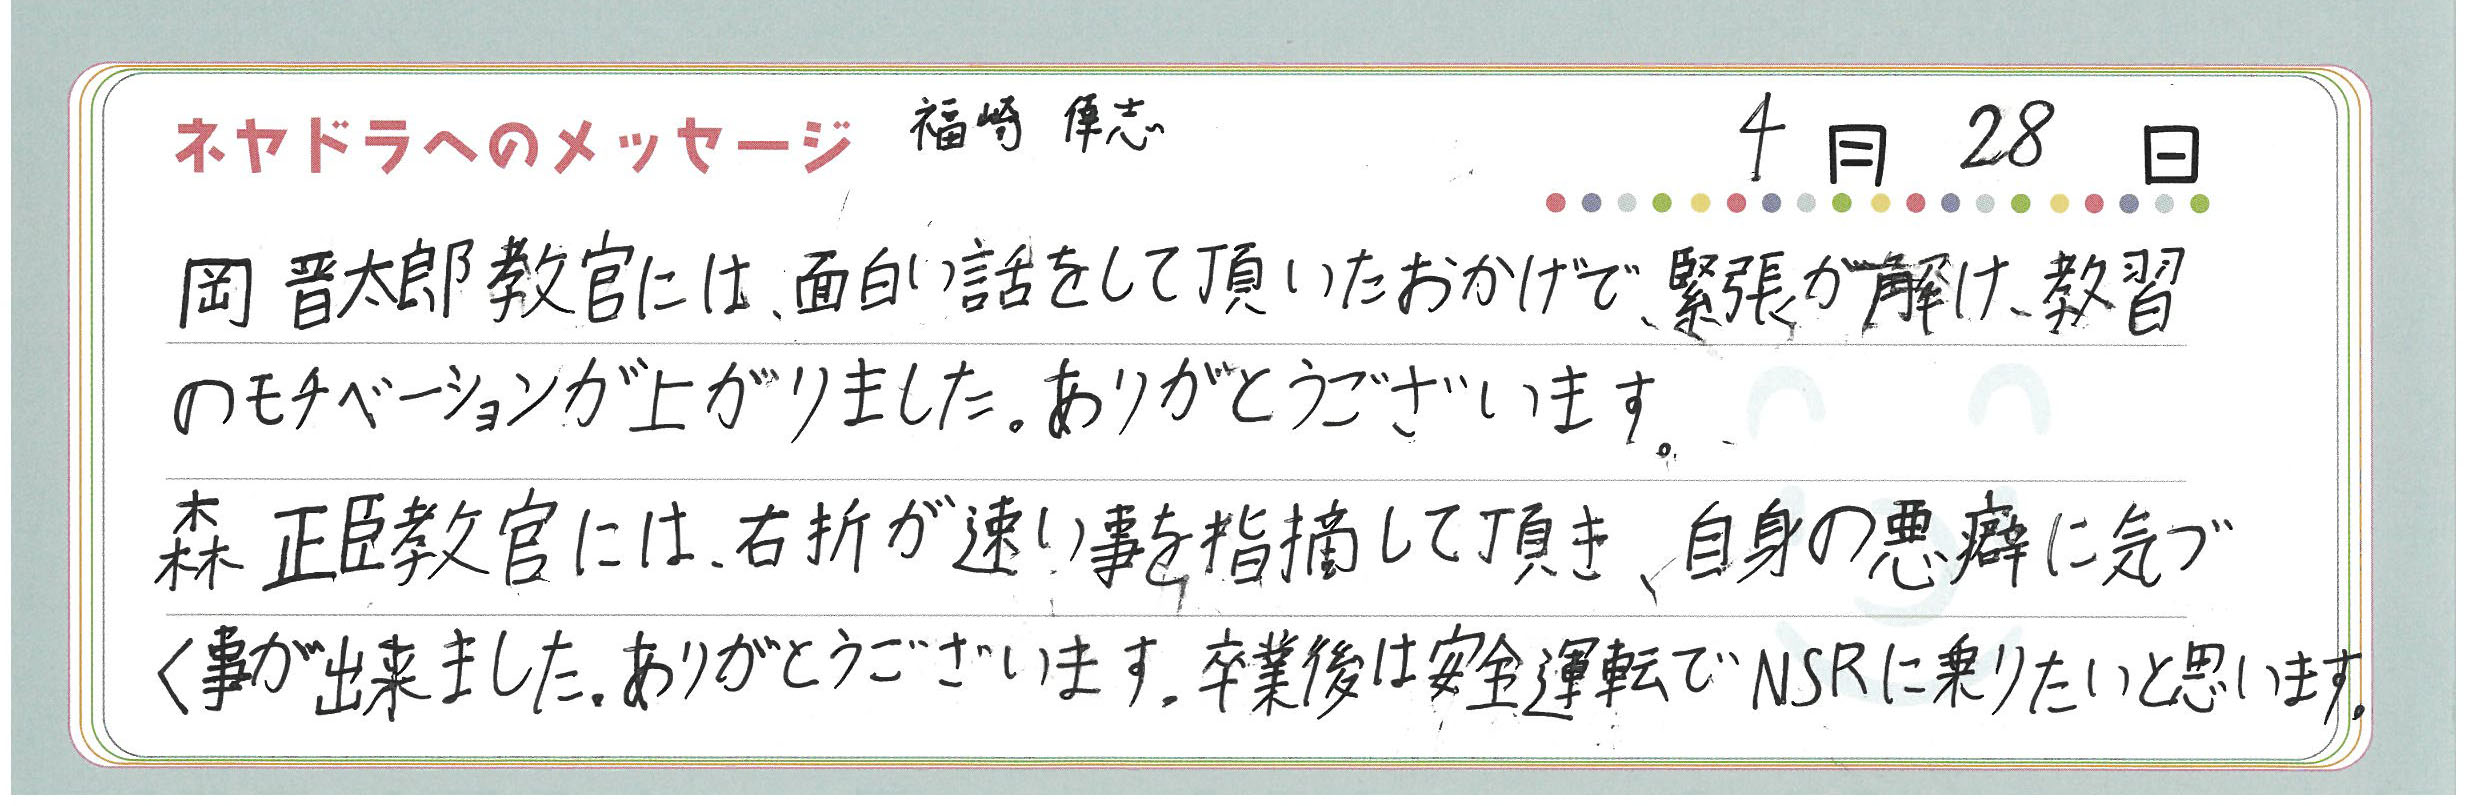 ネヤドラへのメッセージ 福崎 偉志 4月 28日
岡 晋太郎教官には、面白い話をして頂いたおかげで、緊張が解け、教習
のモチベーションが上がりました。ありがとうございます。
森 正臣教官には、右折が速い事を指摘して頂き、自身の悪癖に気づ
く事が出来ました。ありがとうございます。卒業後は安全運転でNSRに乗りたいと思います。